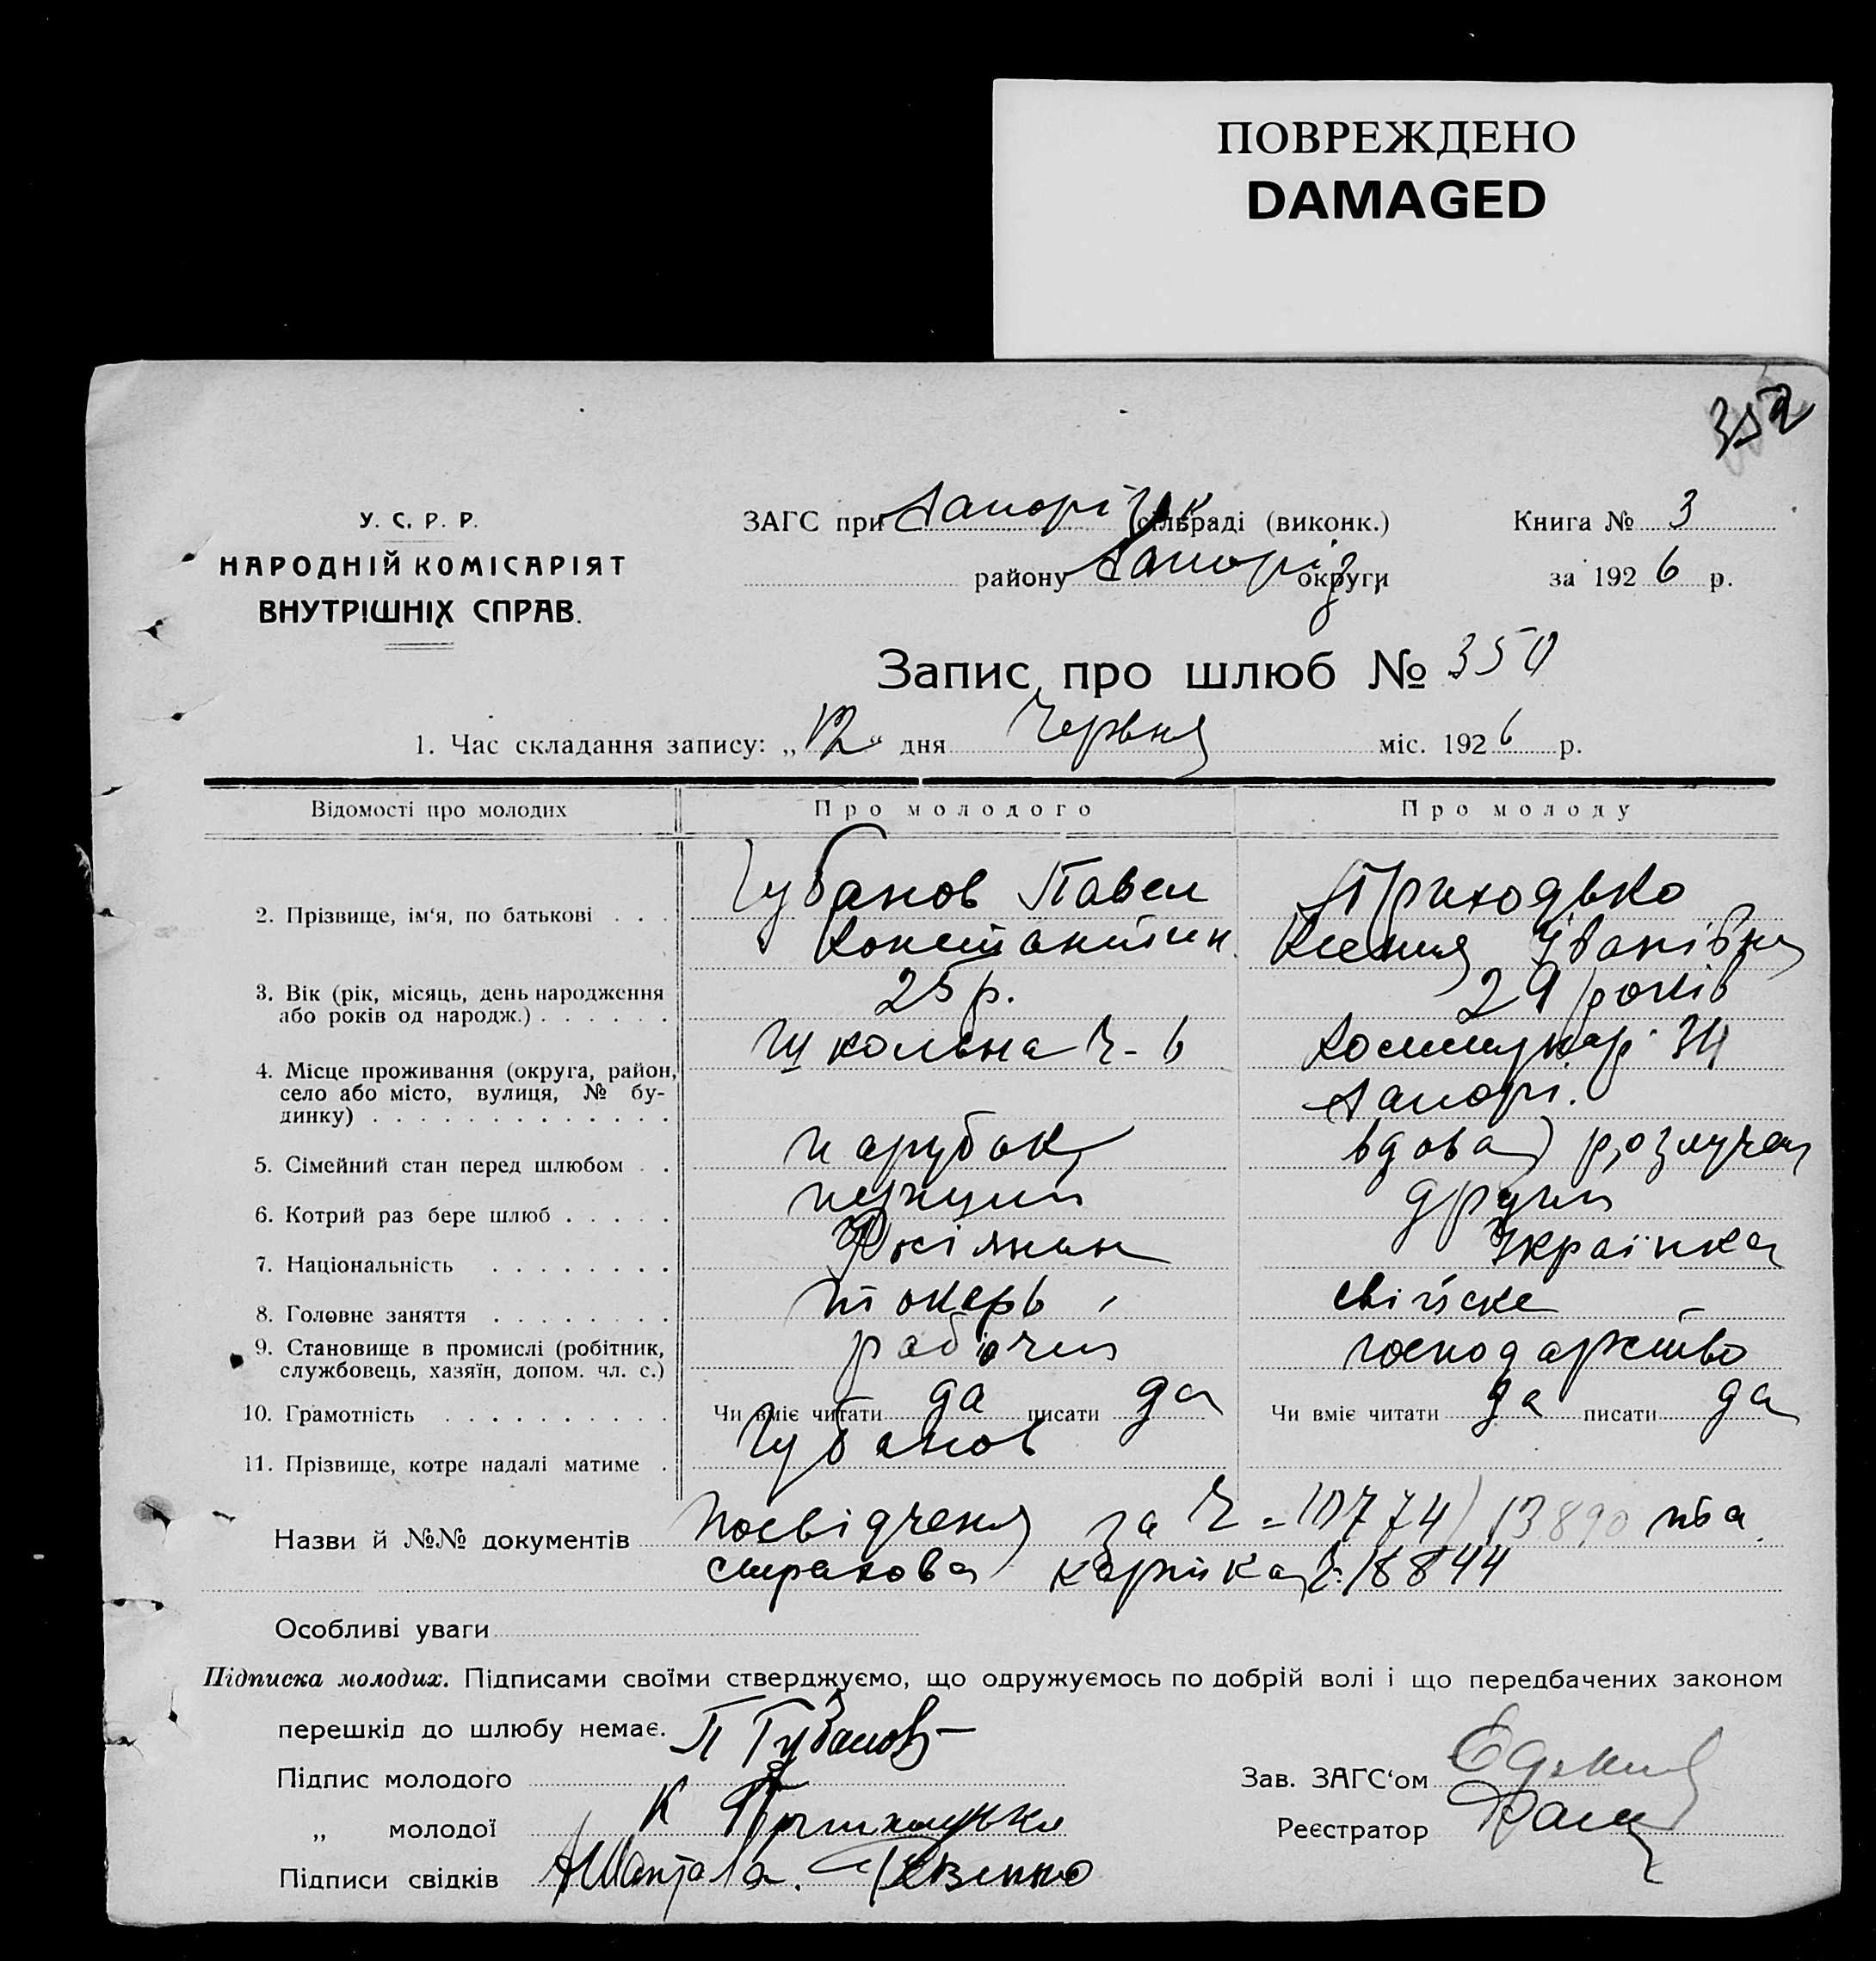 ПОВРЕЖДЕНО
DAMAGED
352
У. С. Р. Р.
НАРОДНІЙ КОМІСАРІЯТ
ВНУТРІШНІХ СПРАВ.
ЗАГС при Запоріз сільраді (виконк.)
району Запоріз. округи
Книга № 3
за 1926 р.
Запис про шлюб № 350
1. Час складання запису: „12“ дня Червня міс. 1926 р.
Відомості про молодих
Про молодого
Про молоду
2. Прізвище, ім‘я, по батькові . . .
Губанов Павел
Константин.
Приходько
Ксения Іванівна
3. Вік (рік, місяць, день народження
або років од народж.) . . . . . .
25 р.
29 років
4. Місце проживання (округа, район,
село або місто, вулиця, № бу-
динку) . . . . . . . . . . . . .
Школьна Ч-6
34
Запорі.
5. Сімейний стан перед шлюбом . .
парубок
вдова) розлучен
6. Котрий раз бере шлюб . . . . .
перший
другий
7. Національність . . . . . . . .
Українка
8. Головне заняття . . . . . . . .
токарь
свійске
9. Становище в промислі (робітник,
службовець, хазяїн, допом. чл. с.)
рабочий
господарство
10. Грамотність . . . . . . . . . .
Чи вміє читати да писати да
Чи вміє читати да писати да
11. Прізвище, котре надалі матиме .
Губанов
Назви й №№ документів Посвідченя за Ч = 10774) 13890 та
страхова картка Ч. 18844
Особливі уваги
Підписка молодих. Підписами своїми стверджуємо, що одружуємось по добрій волі і що передбачених законом
перешкід до шлюбу немає.
Підпис молодого П Губанов
„ молодої К Приходько
Підписи свідків
Зав. ЗАГС‘ом
Реєстратор